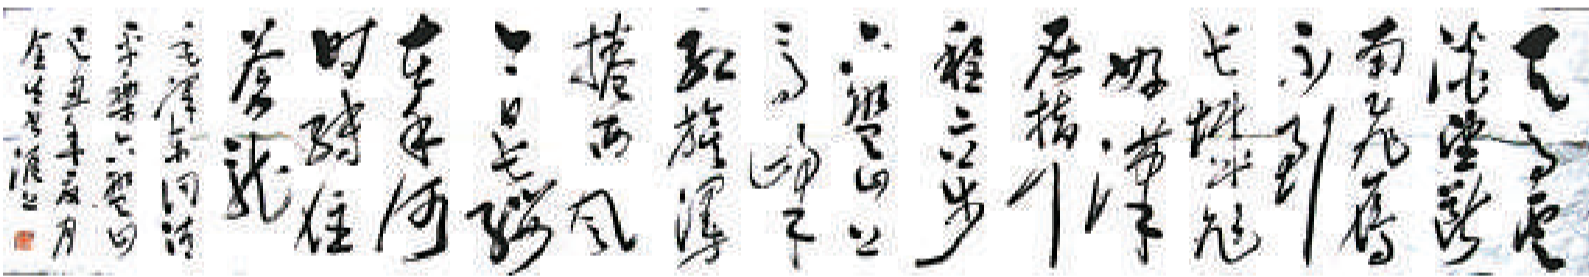 天高雲
淡望断
南飛雁
不到
长城非
好漢
屈指行
程二万
六盤山上
高峰
红旗漫
捲西风
今日长缨
在手何
时缚住
苍龙
毛泽东词清
平樂六盤山
己丑年夏月